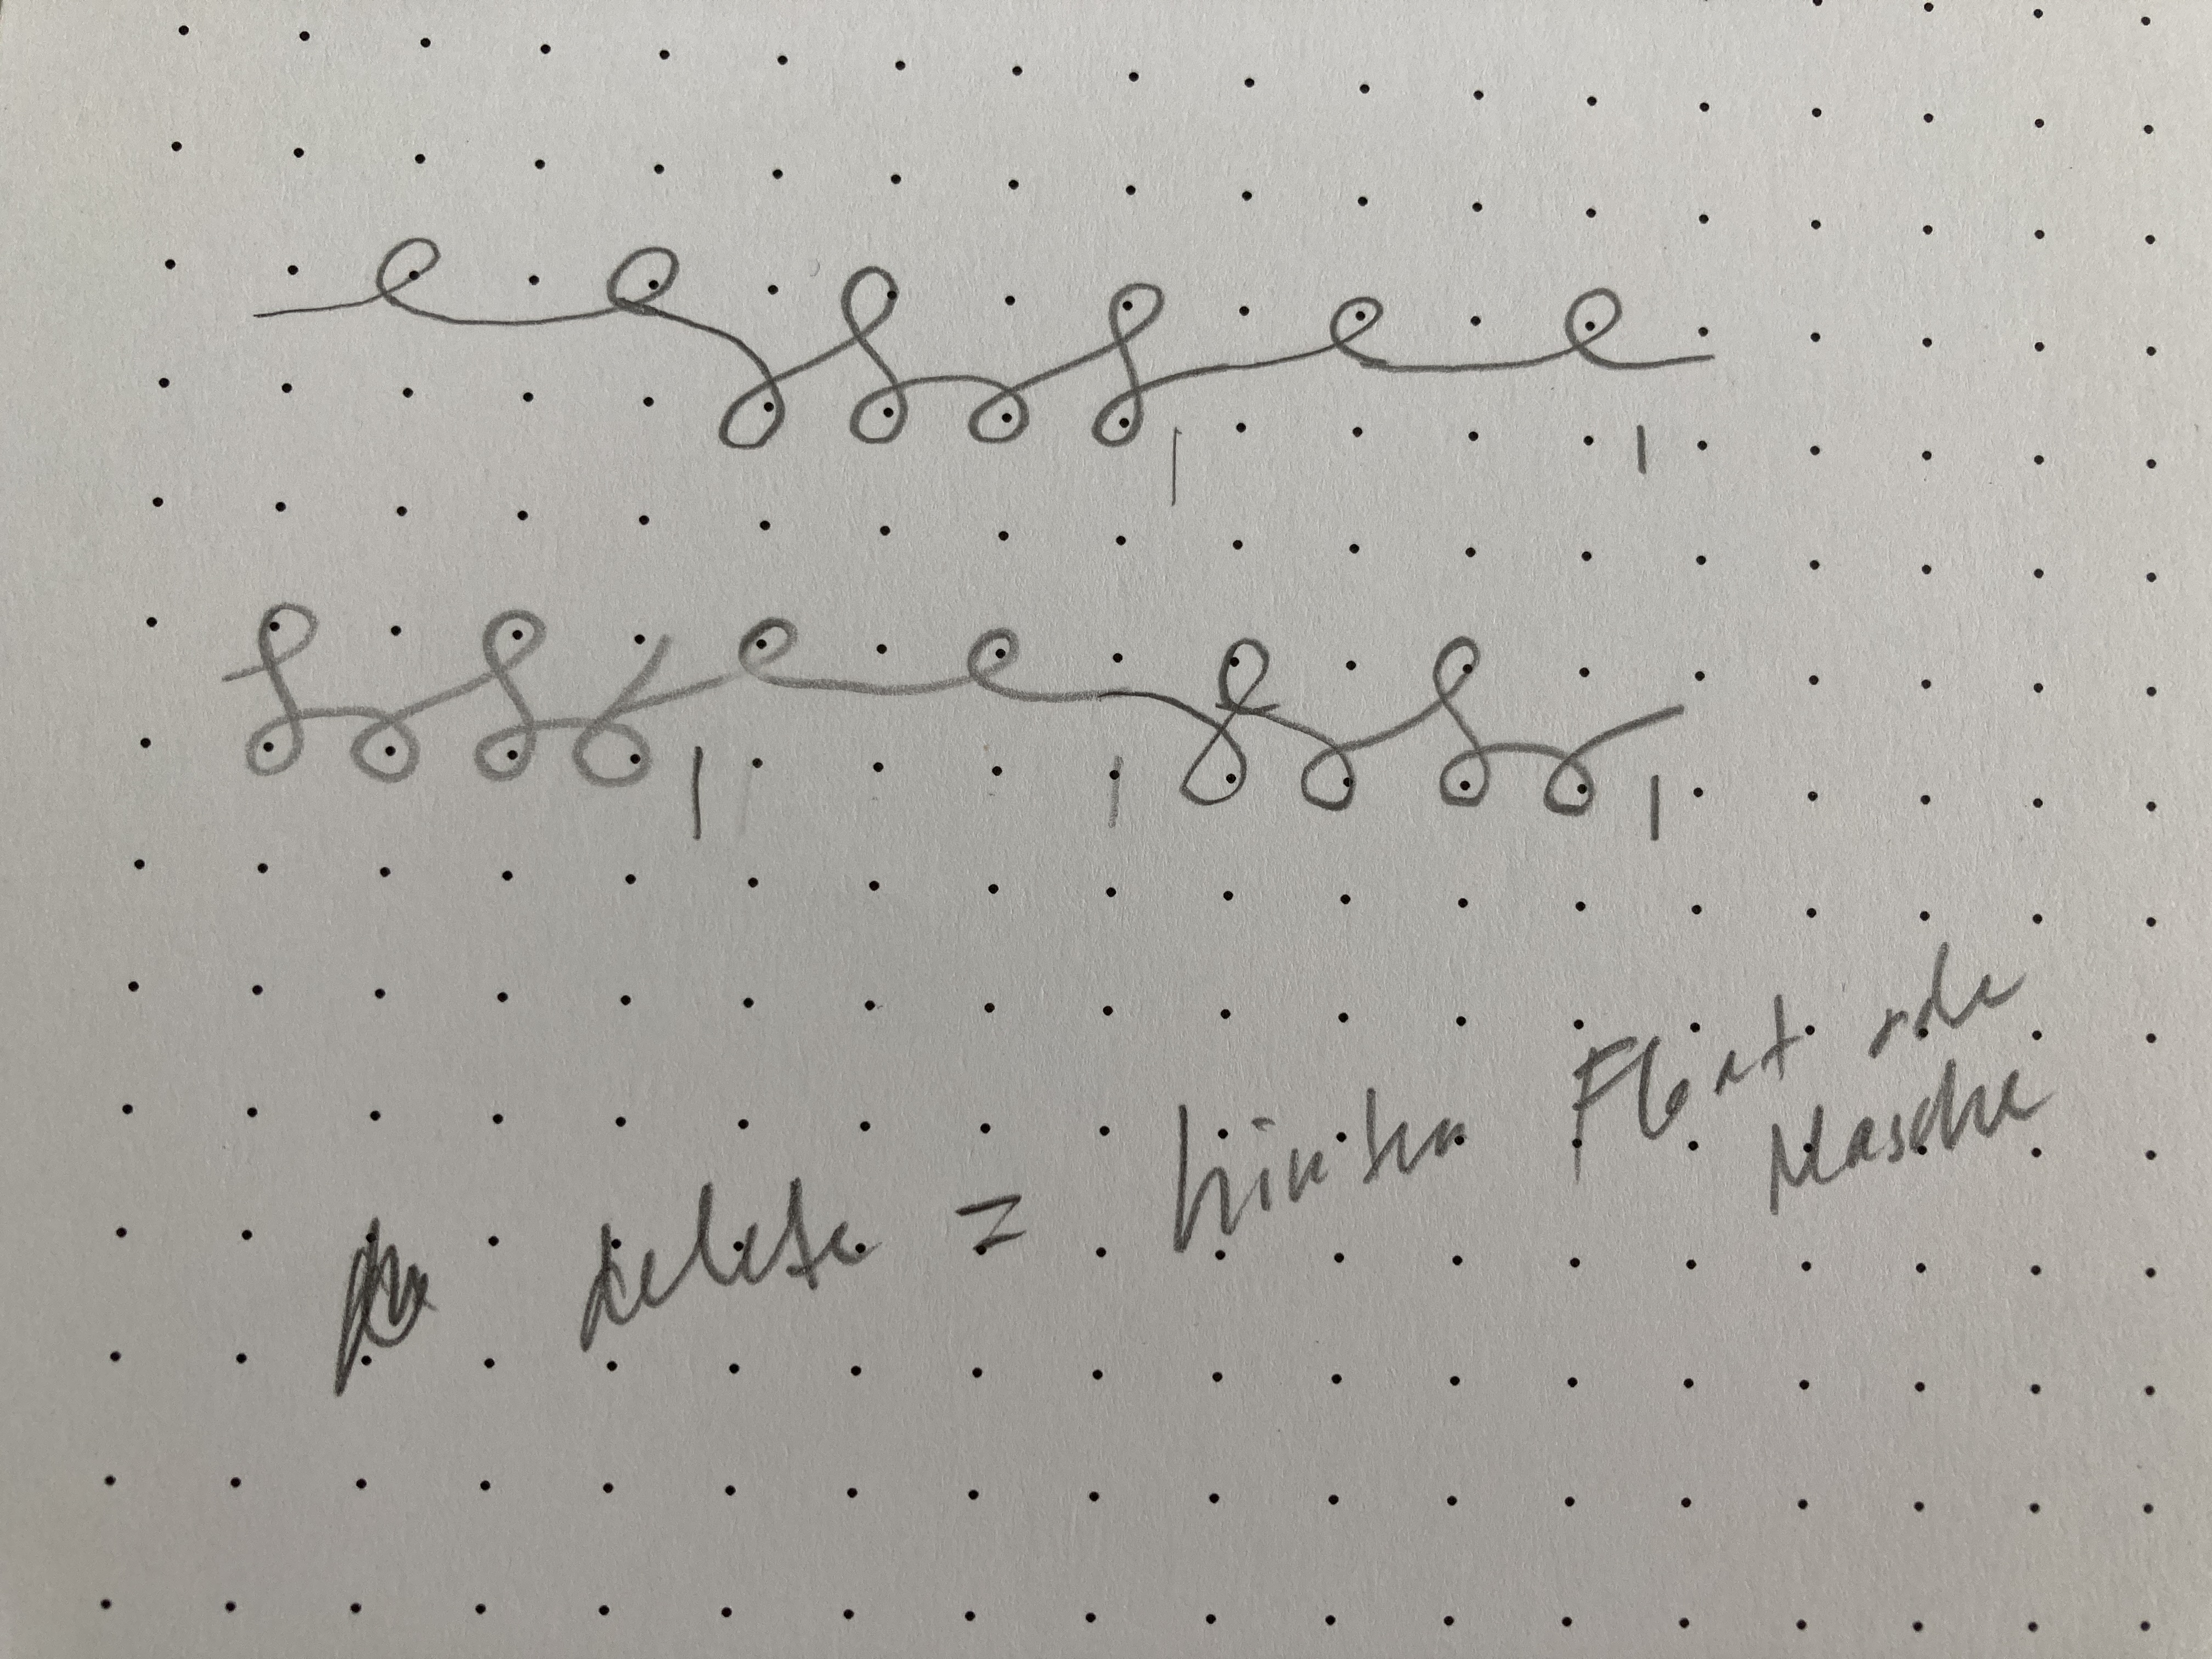 delete = hinten Float oder
Masche